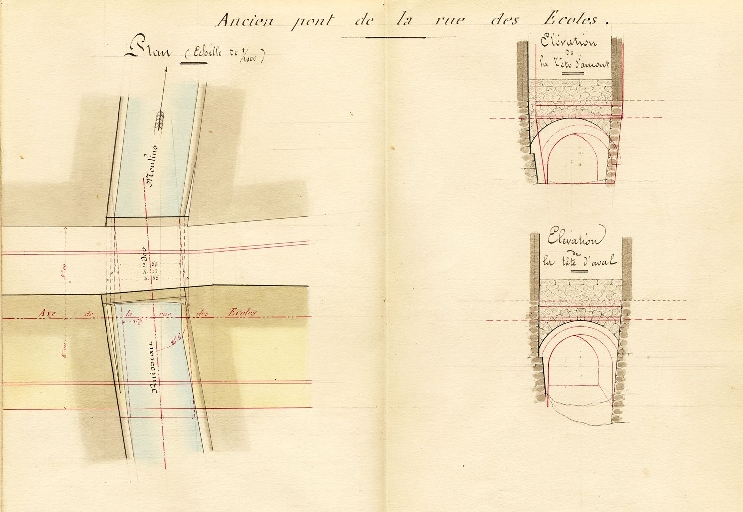 Ancien pont de la rue des Ecoles.
Plan (Echelle de 1/100)
Elévation
de
la tête d'amont
Moulins
des
Elévation
de
la tête d'aval
Axe de la rue des Ecoles
Ruisseau